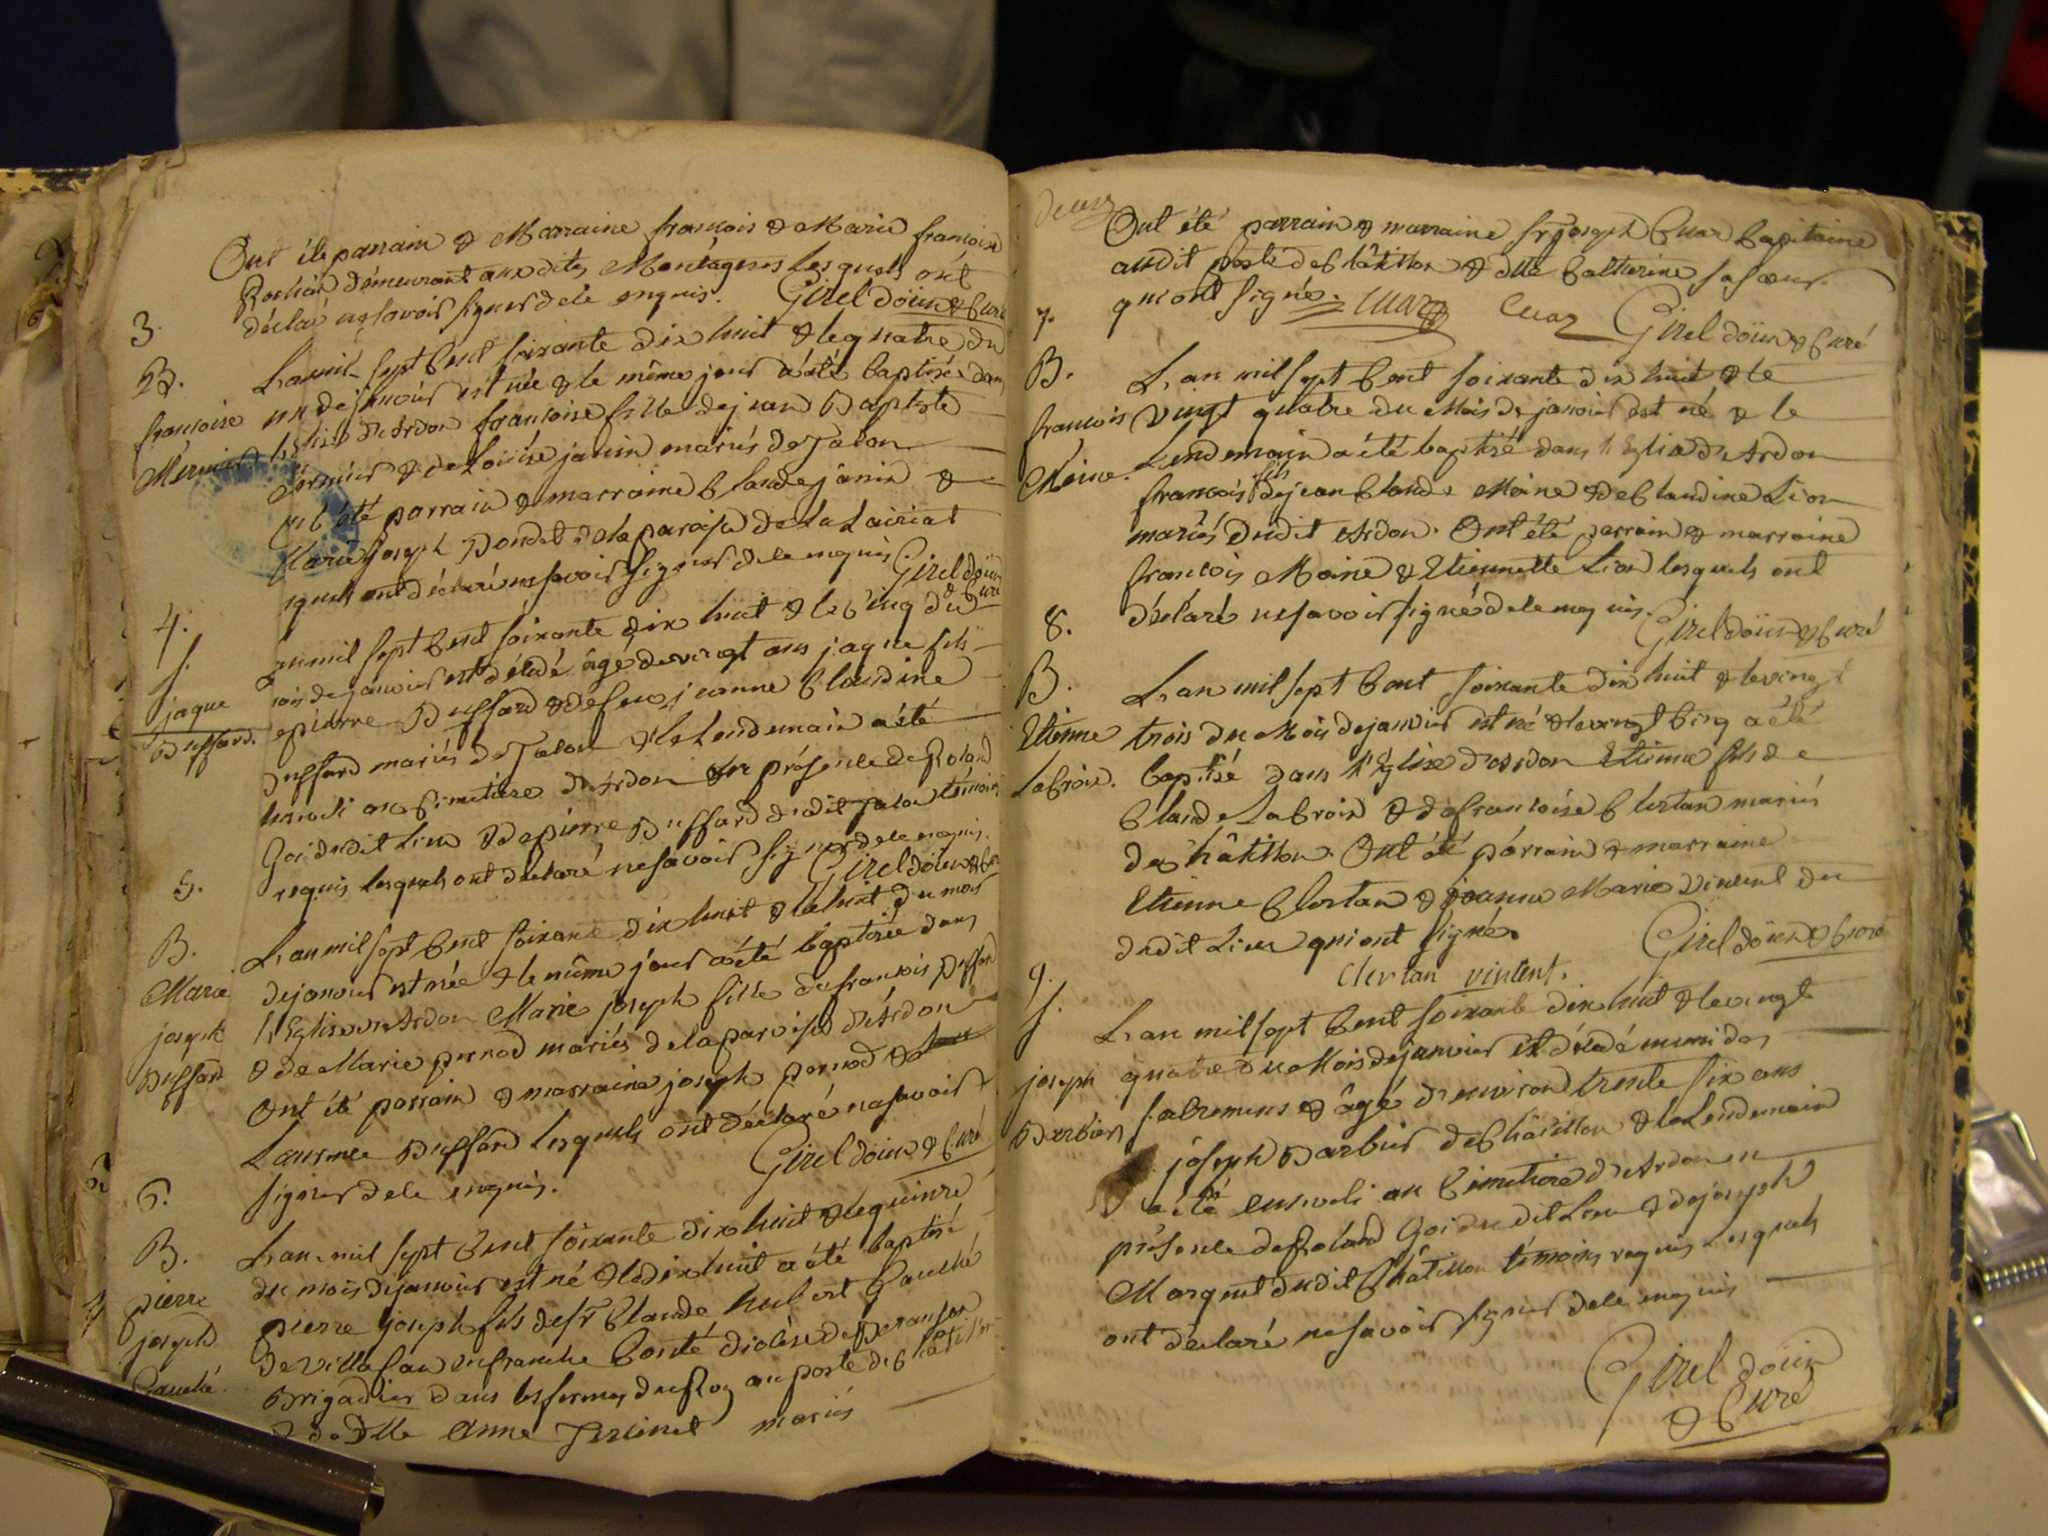 Ont été parrain & Marraine francois & Marie francoise
Rochan demeurant auxdites Montagnes lesquels ont
déclaré ne savoir signer de ce enquis. Girel doïen & Curé
3.
B.
francoise
Mérmier
L'an mil sept Cent soixante dix huit & le quatre du
mois de janvier est née & le même jour a été baptisée dans
l'Eglise d'Ardon francoise fille de jean Baptiste
Mermier & de Loüise janin mariés de Talon
Ont été parrain & marraine Claude janin &
Marie joseph Pondet de la paroisse de La Lairiat
lesquels ont déclaré ne savoir signer de ce enquis Girel doïen
& Curé
4.
S.
jaque
Buffard.
L'an mil sept Cent soixante dix huit & le Cinq du
mois de janvier est décédé âgé de vingt ans jaque fils
de pierre Buffard & de feue jeanne Claudine
Buffard mariés de Talon & le Lendemain a été
enseveli au Cimetière d'Ardon en présence de Roland
Goi dudit Lieu & de pierre Buffard dudit Talon témoins
requis lesquels ont déclaré ne savoir signer de ce enquis.
Girel doïen & Curé
5.
B.
Marie
joseph
Buffard
L'an mil sept Cent soixante dix huit & le huit du mois
de janvier est née & le même jour a été baptisée dans
l'Eglise d'Ardon Marie joseph fille de francois Buffard
& de Marie pernod mariés de la paroisse d'Ardon
Ont été parrain & marraine joseph pernod &
Laurence Buffard lesquels ont déclaré ne savoir
signer de ce enquis. Girel doïen & Curé
6.
B.
pierre
joseph
Gauché.
L'an mil sept Cent soixante dix huit & le quinze
du mois de janvier est né & le dix huit a été baptisé
pierre joseph fils de sr Claude hubert Gauché
de Villafan en franche Comté diocèse de Besançon
Brigadier dans les fermes du Roy au poste de Châtillon
& de Dlle Anne mariés
deux
Ont été parrain & marraine sr joseph Cuaz Capitaine
audit poste de Châtillon & dlle Catherine sa soeur
qui ont signé. Cuaz Cuaz Girel doïen & Curé
7.
B.
francois
Moine.
L'an mil sept Cent soixante dix huit & le
vingt quatre du Mois de janvier est né & le
Lendemain a été baptisé dans l'Eglise d'Ardon
francois fils de jean Claude Moine & de Claudine Lion
mariés dudit Ardon. Ont été parrain & marraine
francois Moine & Etiennette Lion lesquels ont
déclaré ne savoir signé de ce enquis. Girel doïen & Curé
8.
B.
Etienne
Lacroix.
L'an mil sept Cent soixante dix huit & le vingt
trois du Mois de janvier est né & le vingt Cinq a été
baptisé dans l'Eglise d'Ardon Etienne fils de
Claude Lacroix & de francoise Clertan mariés
de Châtillon. Ont été parrain & marraine
Etienne Clertan & jeanne Marie vincent du
dudit Lieu qui ont signé. Girel doïen & Curé
Clertan vintent.
9.
S.
joseph
Barbier
L'an mil sept Cent soixante dix huit & le vingt
quatre du Mois de janvier est décédé muni des
sacremens & âgé d'environ trente six ans
joseph Barbier de Châtillon & le Lendemain
a été enseveli au Cimetière d'Ardon en
présence de Roland Goi dudit Lieu & de joseph
Marquet dudit Châtillon témoins requis lesquels
ont déclaré ne savoir signer de ce enquis
Girel doïen
& Curé